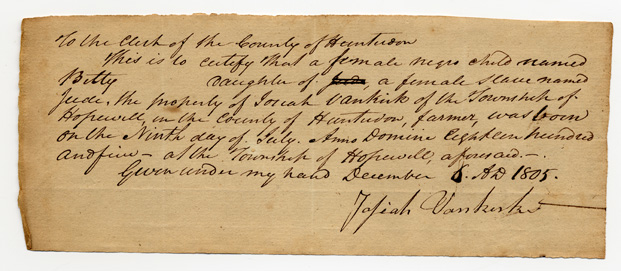 To the Clerk of the County of Hunterdon
This is to certify that a female negro child named
Betty daughter of a female slave named
Jude, the property of Josiah Vankirk of the Township of
Hopewell, in the County of Hunterdon, farmer, was born
on the Ninth day of July. Anno Domine Eighteen hundred
and five – at the Township of Hopewell, aforesaid. –
Given under my hand December 6. AD 1805.
Josiah Vankirk